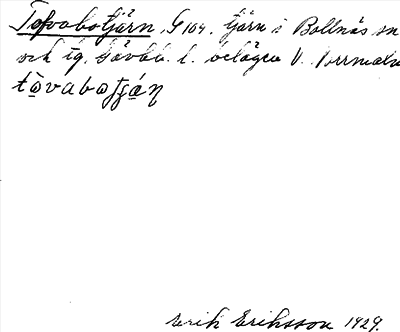 Tofvabotjärn, G 104. tjärn i Bollnäs sn
och tg. Gävleb. l. belägen V. Norrmalm
tòvaboʃʃán
Erik Eriksson 1929.